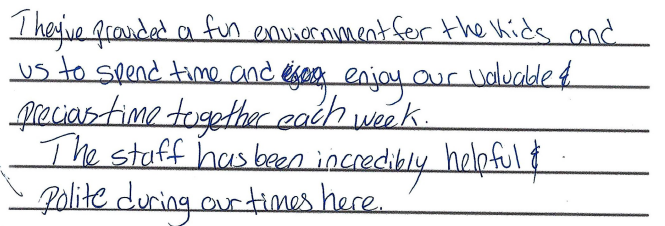 They've provided a fun enviornment for the kids and
us to spend time and enjoy our valuable &
precias time together each week.
The staff has been incredibly helpful &
polite during our times here.